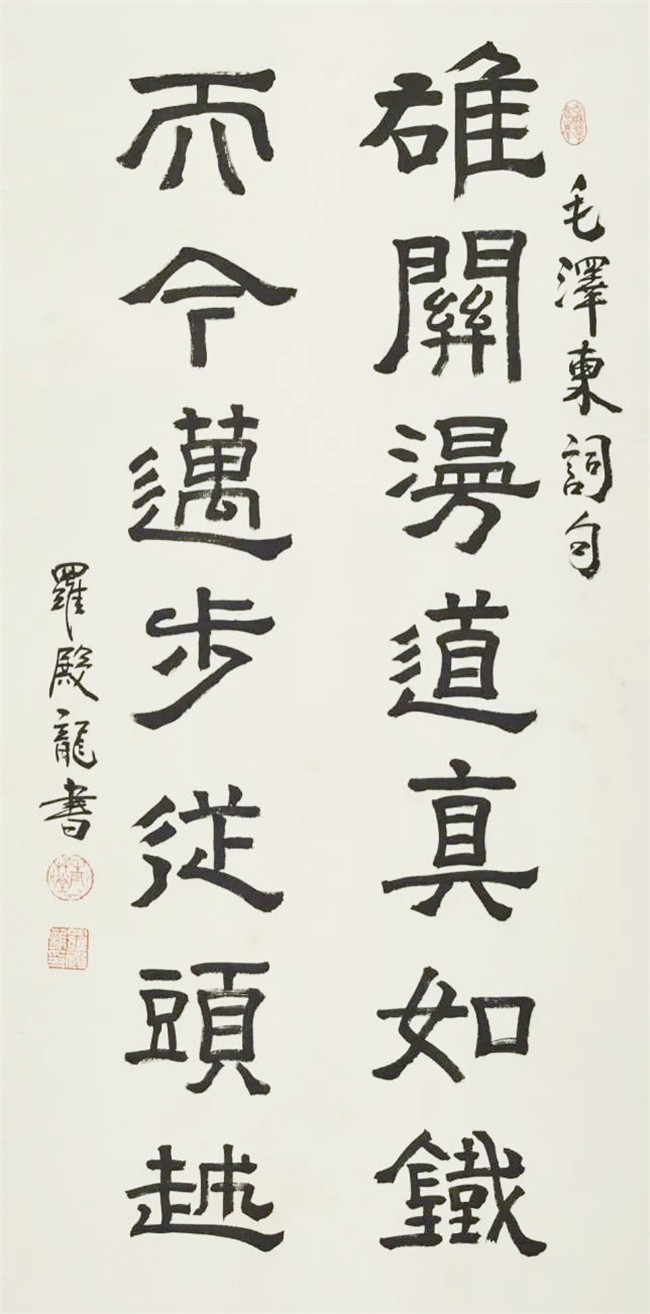 毛澤東詞句
雄關漫道真如鐵
而今邁步從頭越
羅殿龍書